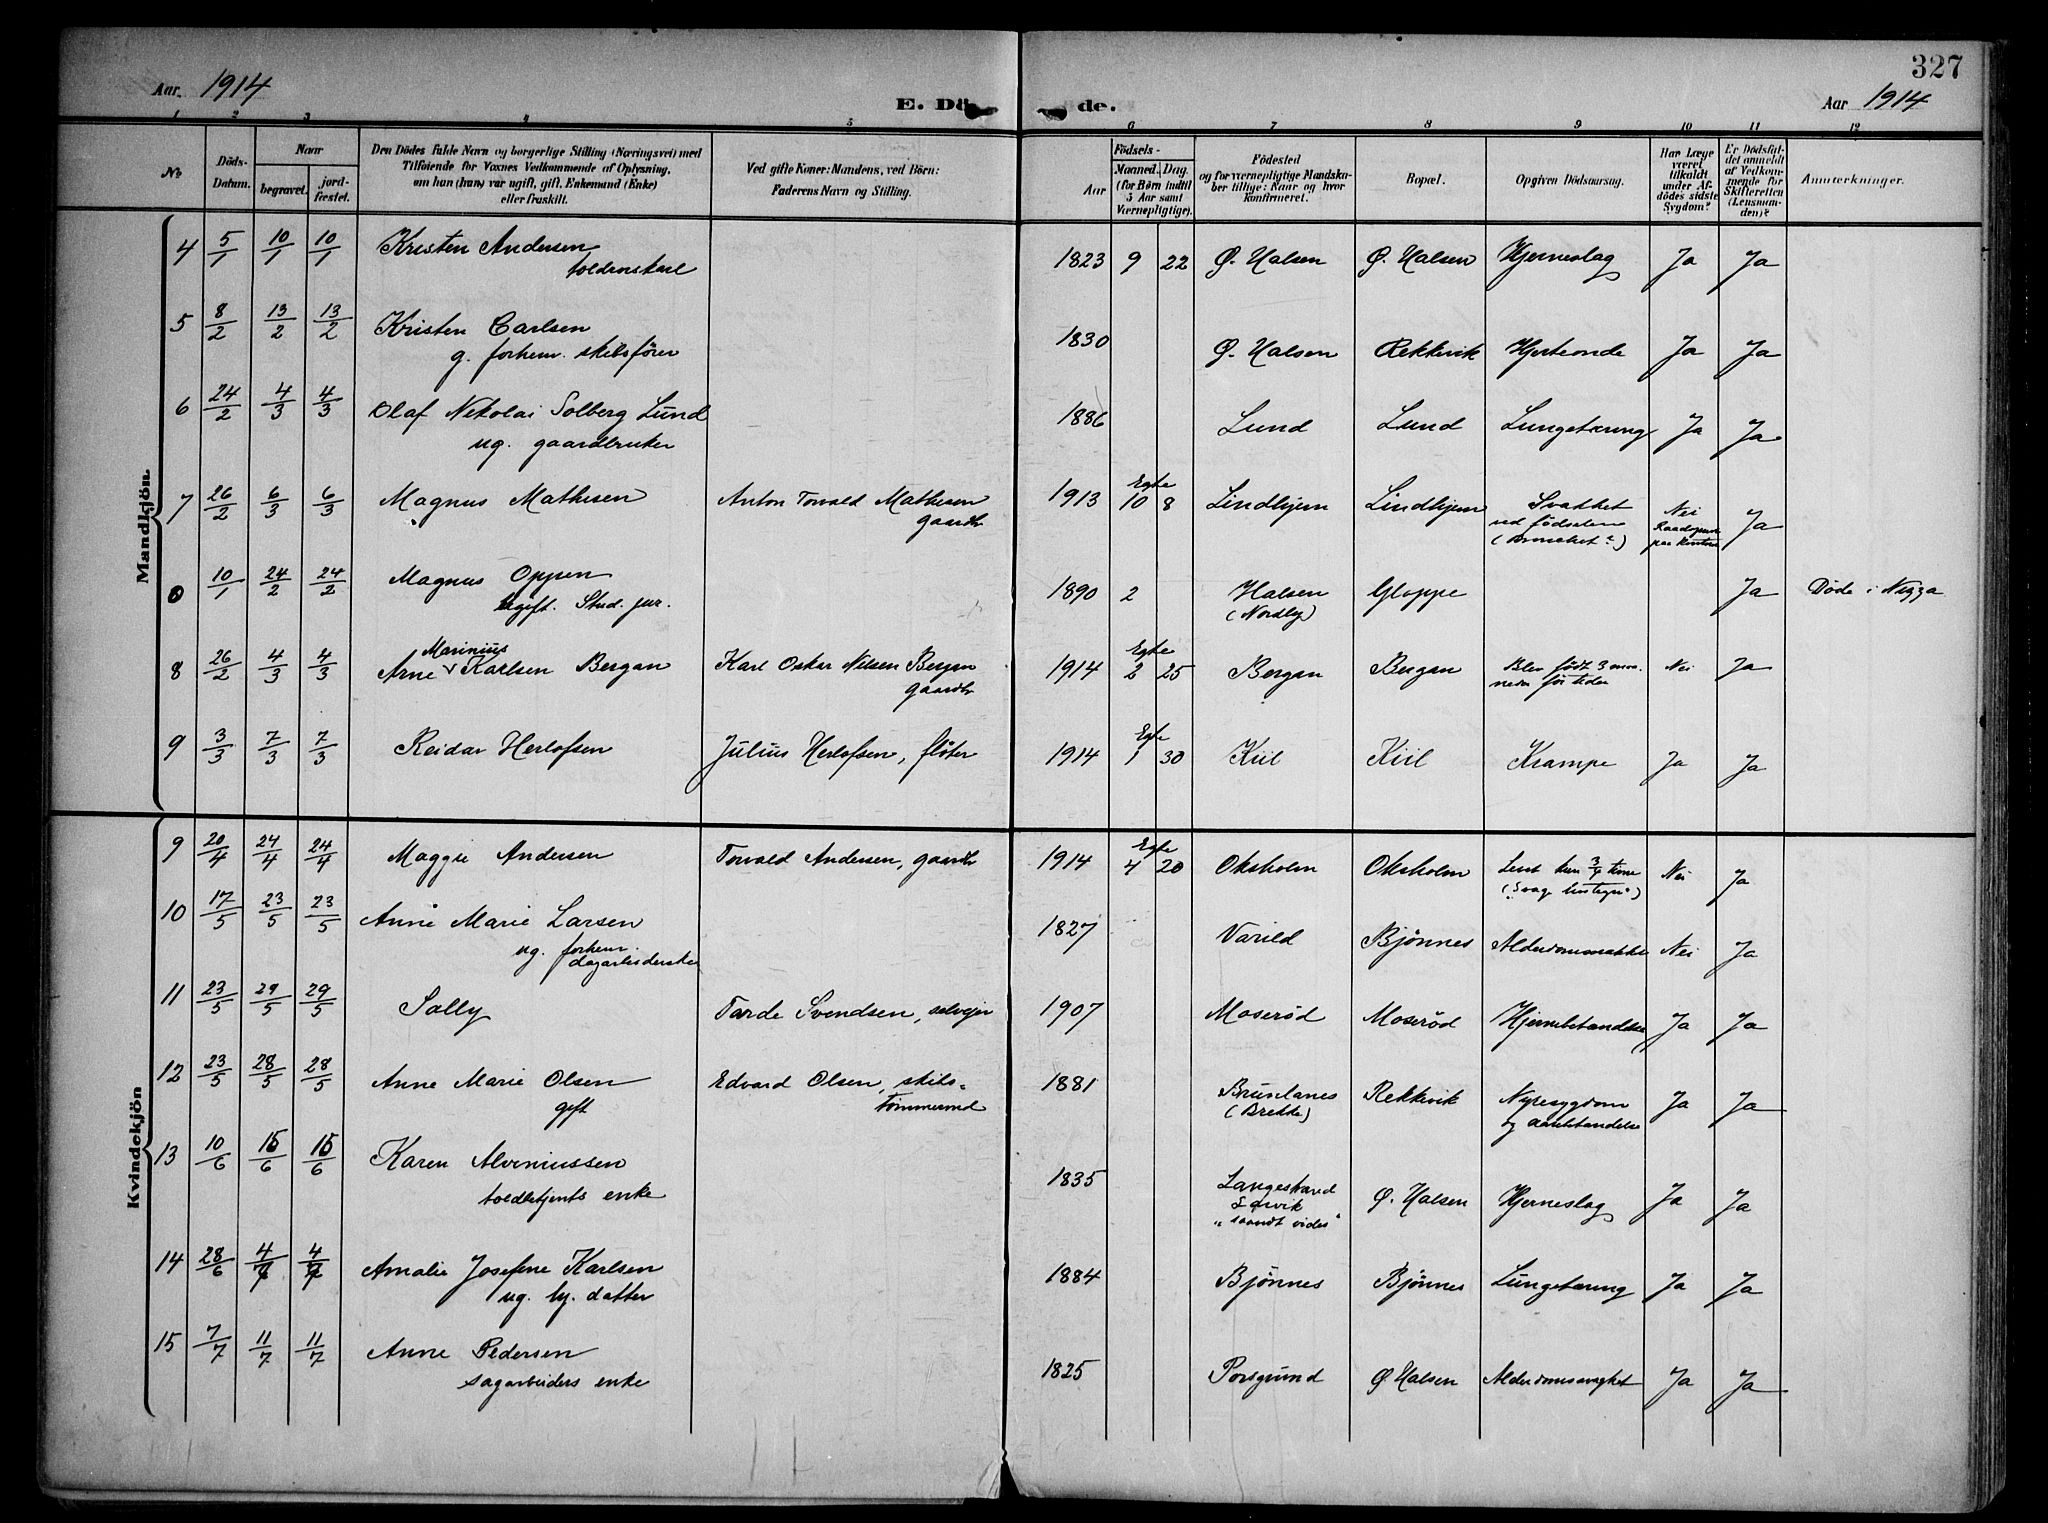 327
Aar 1914
E. Dö
de.
Aar 1914
1 2 3 4 5 6 7 8 9 10 11 12
No
Döds-Datum.
Naar
begravet.
jord-fæstet.
Den Dödes fulde Navn og borgerlige Stilling (Næringsvei) med
Tilföiende for Voxnes Vedkommende af Oplysning,
om han (hun) var ugift, gift, Enkemand (Enke)
eller fraskilt.
Ved gifte Koner: Mandens, ved Börn:
Faderens Navn og Stilling.
Födsels-
Aar
Maaned. Dag.
(for Börn indtil
5 Aar samt
Værnepligtige).
Födested
og for værnepligtige Mandska-
ber tillige: Naar og hvor
konfirmeret.
Bopæl.
Opgiven Dödsaarsag.
Har Læge
været
tilkaldt
under Af-
dödes sidste
Sygdom?
Er Dödsfal-
det anmeldt
af Vedkom-
mende for
Skifteretten
(Lensman-
den)?
Anmærkninger.
Mandkjön.
4 5/1 10/1 10/1 Kristen Andersen 1823 9 22 Ø. Halsen Ø. Halsen Hjerneslag Ja Ja
5 8/2 13/2 13/2 Kristen Carlsen 1830 Ø. Halsen Rekkevik Hjerteonde Ja Ja
g. forhenv. skibsfører
6 24/2 4/3 4/3 Olaf Nikolai Solberg Lund 1886 Lund Lund Lungetæring Ja Ja
ug. gaardbruker
7 26/2 6/3 6/3 Magnus Mathisen Anton Torvald Mathisen 1913 Egte 10 8 Lindhjem Lindhjem Svakhet Nei Ja
gaardbr ved fødselen
0 10/1 24/2 24/2 Magnus Oppen 1890 2 Halsen Gloppe Ja Døde i Nizza
ugift. Stud. jur. (Nordby)
Marinius
8 26/2 4/3 4/3 Arne Karlsen Bergan Karl Oskar Nilsen Bergan 1914 Egte 2 25 Bergan Bergan Blev født 3 maa- Nei Ja
gaardbr neder før tiden
9 3/3 7/3 7/3 Reidar Herlofsen Julius Herlofsen, fløter 1914 Egte 1 30 Kiil Kiil Krampe Ja Ja
Kvindekjön
9 20/4 24/4 24/4 Maggie Andersen Torvald Andersen, gaardbr 1914 Egte 4 20 Oksholm Oksholm Levet kun 3/4 time Nei Ja
10 17/5 23/5 23/5 Anne Marie Larsen 1827 Varild Bjønnes Alderdomssvakhet Nei Ja
ug. forhenv.
dagarbeiderske
11 23/5 29/5 29/5 Solly Tarde Svendsen, selveier 1907 Moserød Moserød Hjernebetændelse Ja Ja
12 23/5 28/5 28/5 Anne Marie Olsen Edvard Olsen, skibs- 1881 Brunlanes Rekkevik Nyresygdom Ja Ja
gift tømmermd (Brekke)
13 10/6 15/6 15/6 Karen Alviniussen 1835 Langestrand Ø. Halsen Hjerneslag Ja Ja
toldbetjents enke Larvik
"saavidt vides"
14 28/6 4/7 4/7 Amalie Josefine Karlsen 1884 Bjønnes Bjønnes Lungetæring Ja Ja
ug. hj. datter
15 7/7 11/7 11/7 Anne Pedersen 1825 Porsgrund Ø. Halsen Alderdomssvaghet Ja Ja
sagarbeiders enke